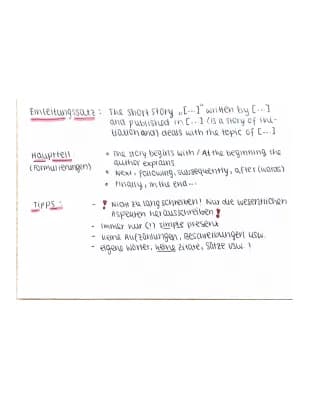 Einleitungssatz: The short story „[...]" written by [...]
and published in [...] (is a story of ini-
tiation and) deals with the topic of [...]
Hauptteil
(Formulierungen)
• The story begins with / At the beginning the
author explains
• Next, following, subsequently, after (wards)
• Finally, in the end...
Tipps:
- ! Nicht zu lang schreiben! Nur die wesentlichen
Aspekten herausschreiben!
- Immer nur (!) simple present
- keine Aufzählungen, Beschreibungen usw.
- eigene Wörter, keine Zitate, Sätze usw. !